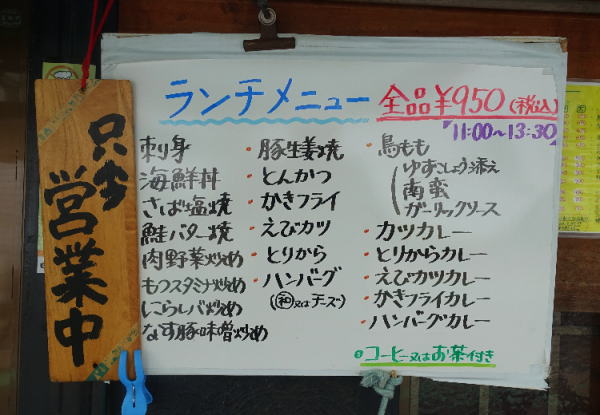 只今
営業中
ランチメニュー 全品¥950(税込)
「11:00~13:30」
刺身
海鮮丼
さば塩焼
鮭バター焼
肉野菜炒め
もつスタミナ炒め
にらレバ炒め
なす豚味噌炒め
・豚生姜焼
・とんかつ
・かきフライ
・えびカツ
・とりから
・ハンバーグ
(和又はチーズ)
・鳥もも
ゆずこしょう添え
南蛮
ガーリックソース
・カツカレー
・とりからカレー
・えびカツカレー
・かきフライカレー
・ハンバーグカレー
コーヒー又はお茶付き